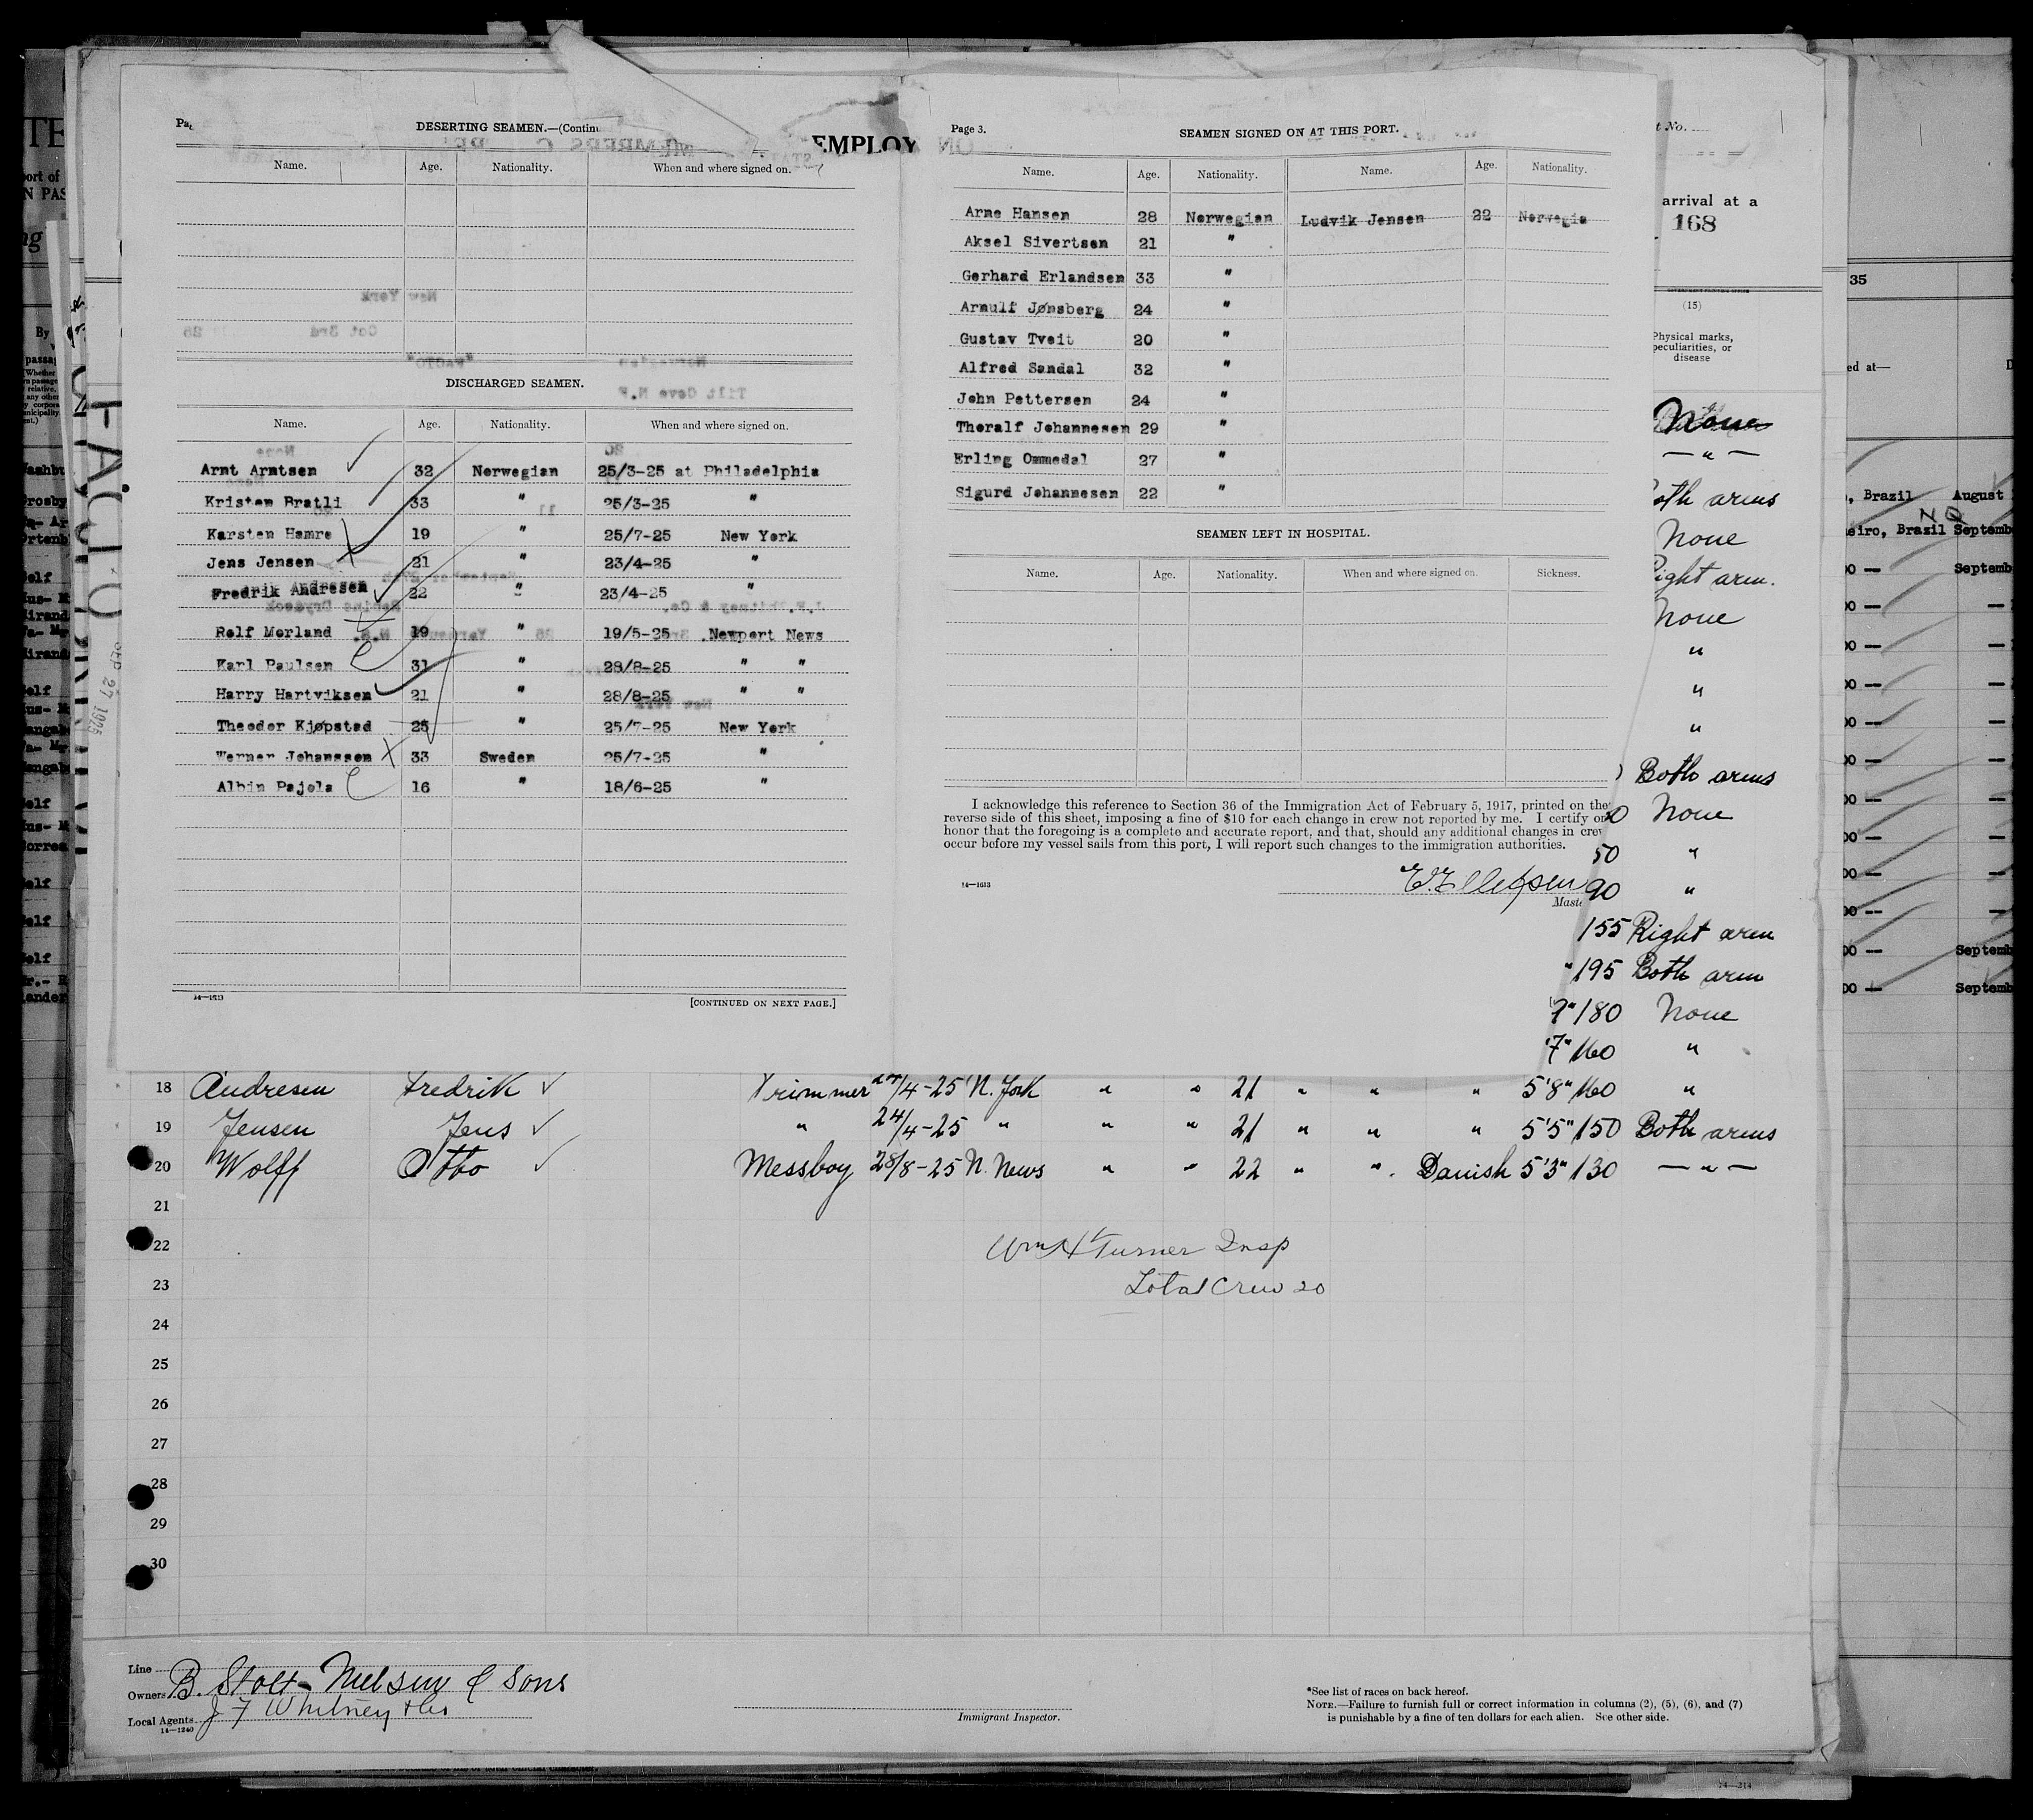 DESERTING SEAMEN.—(Contin
EMPLOY
Name. Age. Nationality. When and where signed on.
DISCHARGED SEAMEN.
Name. Age. Nationality. When and where signed on.
Arnt Arntsen 32 Norwegian 25/3-25 at Philadelphia
Kristen Bratli 33 " 25/3-25 "
Karsten Hamre 19 " 25/7-25 New York
Jens Jensen 21 " 23/4-25 "
Fredrik Andresen 22 " 23/4-25 "
Rolf Morland 19 " 19/5-25 Newport News
Karl Paulsen 31 " 28/8-25 " "
Harry Hartviksen 21 " 28/8-25 " "
Theodor Kjøpstad 25 " 25/7-25 New York
Werner Johanssen 33 Sweden 25/7-25 "
Albin Pajola 16 " 18/6-25 "
14—1613
[CONTINUED ON NEXT PAGE.]
Page 3.
SEAMEN SIGNED ON AT THIS PORT.
Name. Age. Nationality. Name. Age. Nationality.
Arne Hansen 28 Norwegian Ludvik Jensen 22 Norwegia
Aksel Sivertsen 21 "
Gerhard Erlandsen 33 "
Arnulf Jønsberg 24 "
Gustav Tveit 20 "
Alfred Sandal 32 "
John Pettersen 24 "
Thoralf Johannesen 29 "
Erling Ommedal 27 "
Sigurd Johannesen 22 "
SEAMEN LEFT IN HOSPITAL.
Name. Age. Nationality. When and where signed on. Sickness.
I acknowledge this reference to Section 36 of the Immigration Act of February 5, 1917, printed on the
reverse side of this sheet, imposing a fine of $10 for each change in crew not reported by me. I certify on
honor that the foregoing is a complete and accurate report, and that, should any additional changes in crew
occur before my vessel sails from this port, I will report such changes to the immigration authorities.
14—1613
E. Ellefsen
Maste
arrival at a
168
(15)
Physical marks,
peculiarities, or
disease
None
— " —
Both arms
None
Right arm.
None
"
"
"
Both arms
None
50 "
90 "
155 Right arm
" 195 Both arm
7" 180 None
'7" 160 "
18 Andresen Fredrik Trimmer 24/4-25 N. York " " 21 " " " 5'8" 160 "
19 Jensen Jens " 24/4-25 " " " 21 " " " 5'5" 150 Both arms
20 Wolff Otto Messboy 28/8-25 N. News " " 22 " " Danish 5'3" 130 — " —
21
22
Wm H Turner Insp
23
Total Crew 20
24
25
26
27
28
29
30
Line
Owners B. Stolt-Nielsen & Sons
Local Agents J F Whitney & Co
14—1240
Immigrant Inspector.
*See list of races on back hereof.
NOTE.—Failure to furnish full or correct information in columns (2), (5), (6), and (7)
is punishable by a fine of ten dollars for each alien. See other side.
SEP 27 1925
35
, Brazil August
eiro, Brazil Septemb
Septemb
Septemb
Septemb
14—214